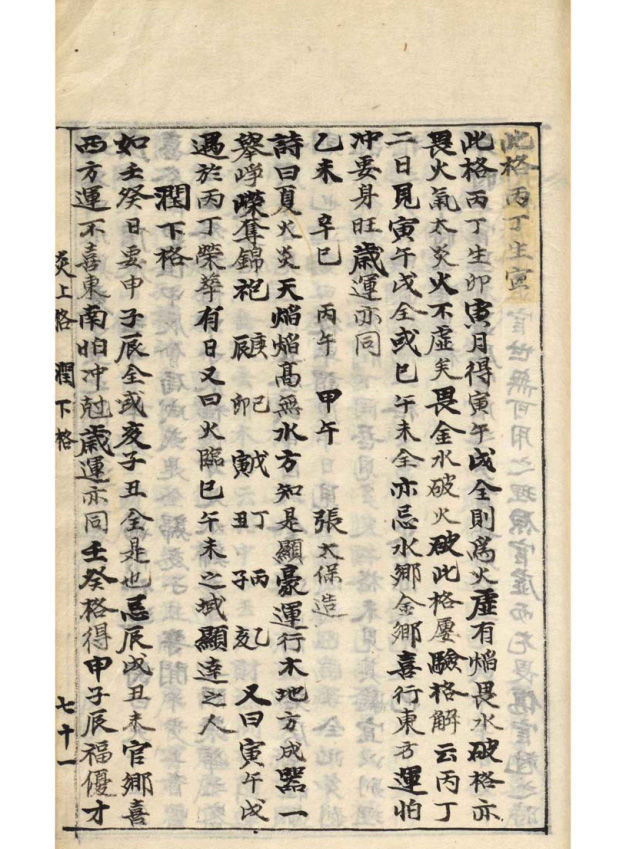 此格丙丁生寅
此格丙丁生卯寅月得寅午戌全則爲火虛有焰畏水破格亦
畏火氣太炎火不虛矣畏金水破火破此格屡驗格解云丙丁
二日見寅午戌全或巳午未全亦忌水鄉金鄉喜行東方運怕
冲要身旺歲運亦同
乙未 辛巳 丙午 甲午 張太保造
詩曰夏火炎天焰焰高無水方知是顯豪運行木地方成器一
擧崢嶸奪錦袍 庚辰 己卯 戊寅 丁丑 丙子 乙亥 又曰寅午戌
遇於丙丁榮華有日又曰火臨巳午未之域顯達之人
潤下格
如壬癸日要申子辰全或亥子丑全是也忌辰戌丑未官鄉喜
西方運不喜東南怕冲尅歲運亦同壬癸格得申子辰福優才
炎上格 潤下格 七十一